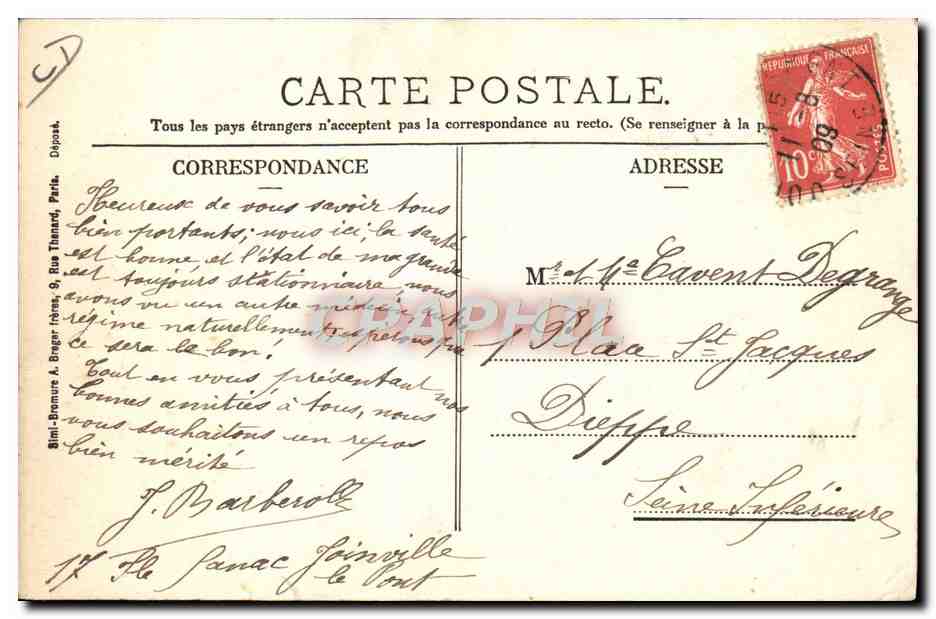 CD
CARTE POSTALE.
Tous les pays étrangers n'acceptent pas la correspondance au recto. (Se renseigner à la p
CORRESPONDANCE
Heureux de vous savoir tous
bien portants; nous ici, la santé
est bonne et l'état de ma grand
est toujours stationnaire, nous
avons vu un autre médecin, autre
régime naturellement, espérons que
ce sera le bon!
Tout en vous présentant nos
bonnes amitiés à tous, nous
vous souhaitons un repos
bien mérité
J. Barberolle
17 Ile Fanac Joinville
le Pont
ADRESSE
Mr et Me Cavent Degrange
1 Place St Jacques
Dieppe
Seine Inférieure
REPUBLIQUE FRANÇAISE
10c
POSTES
11 5
-8
09
SEINE
CPAPHIL
Simi-Bromure A. Breger frères, 9, Rue Thenard, Paris. Déposé.